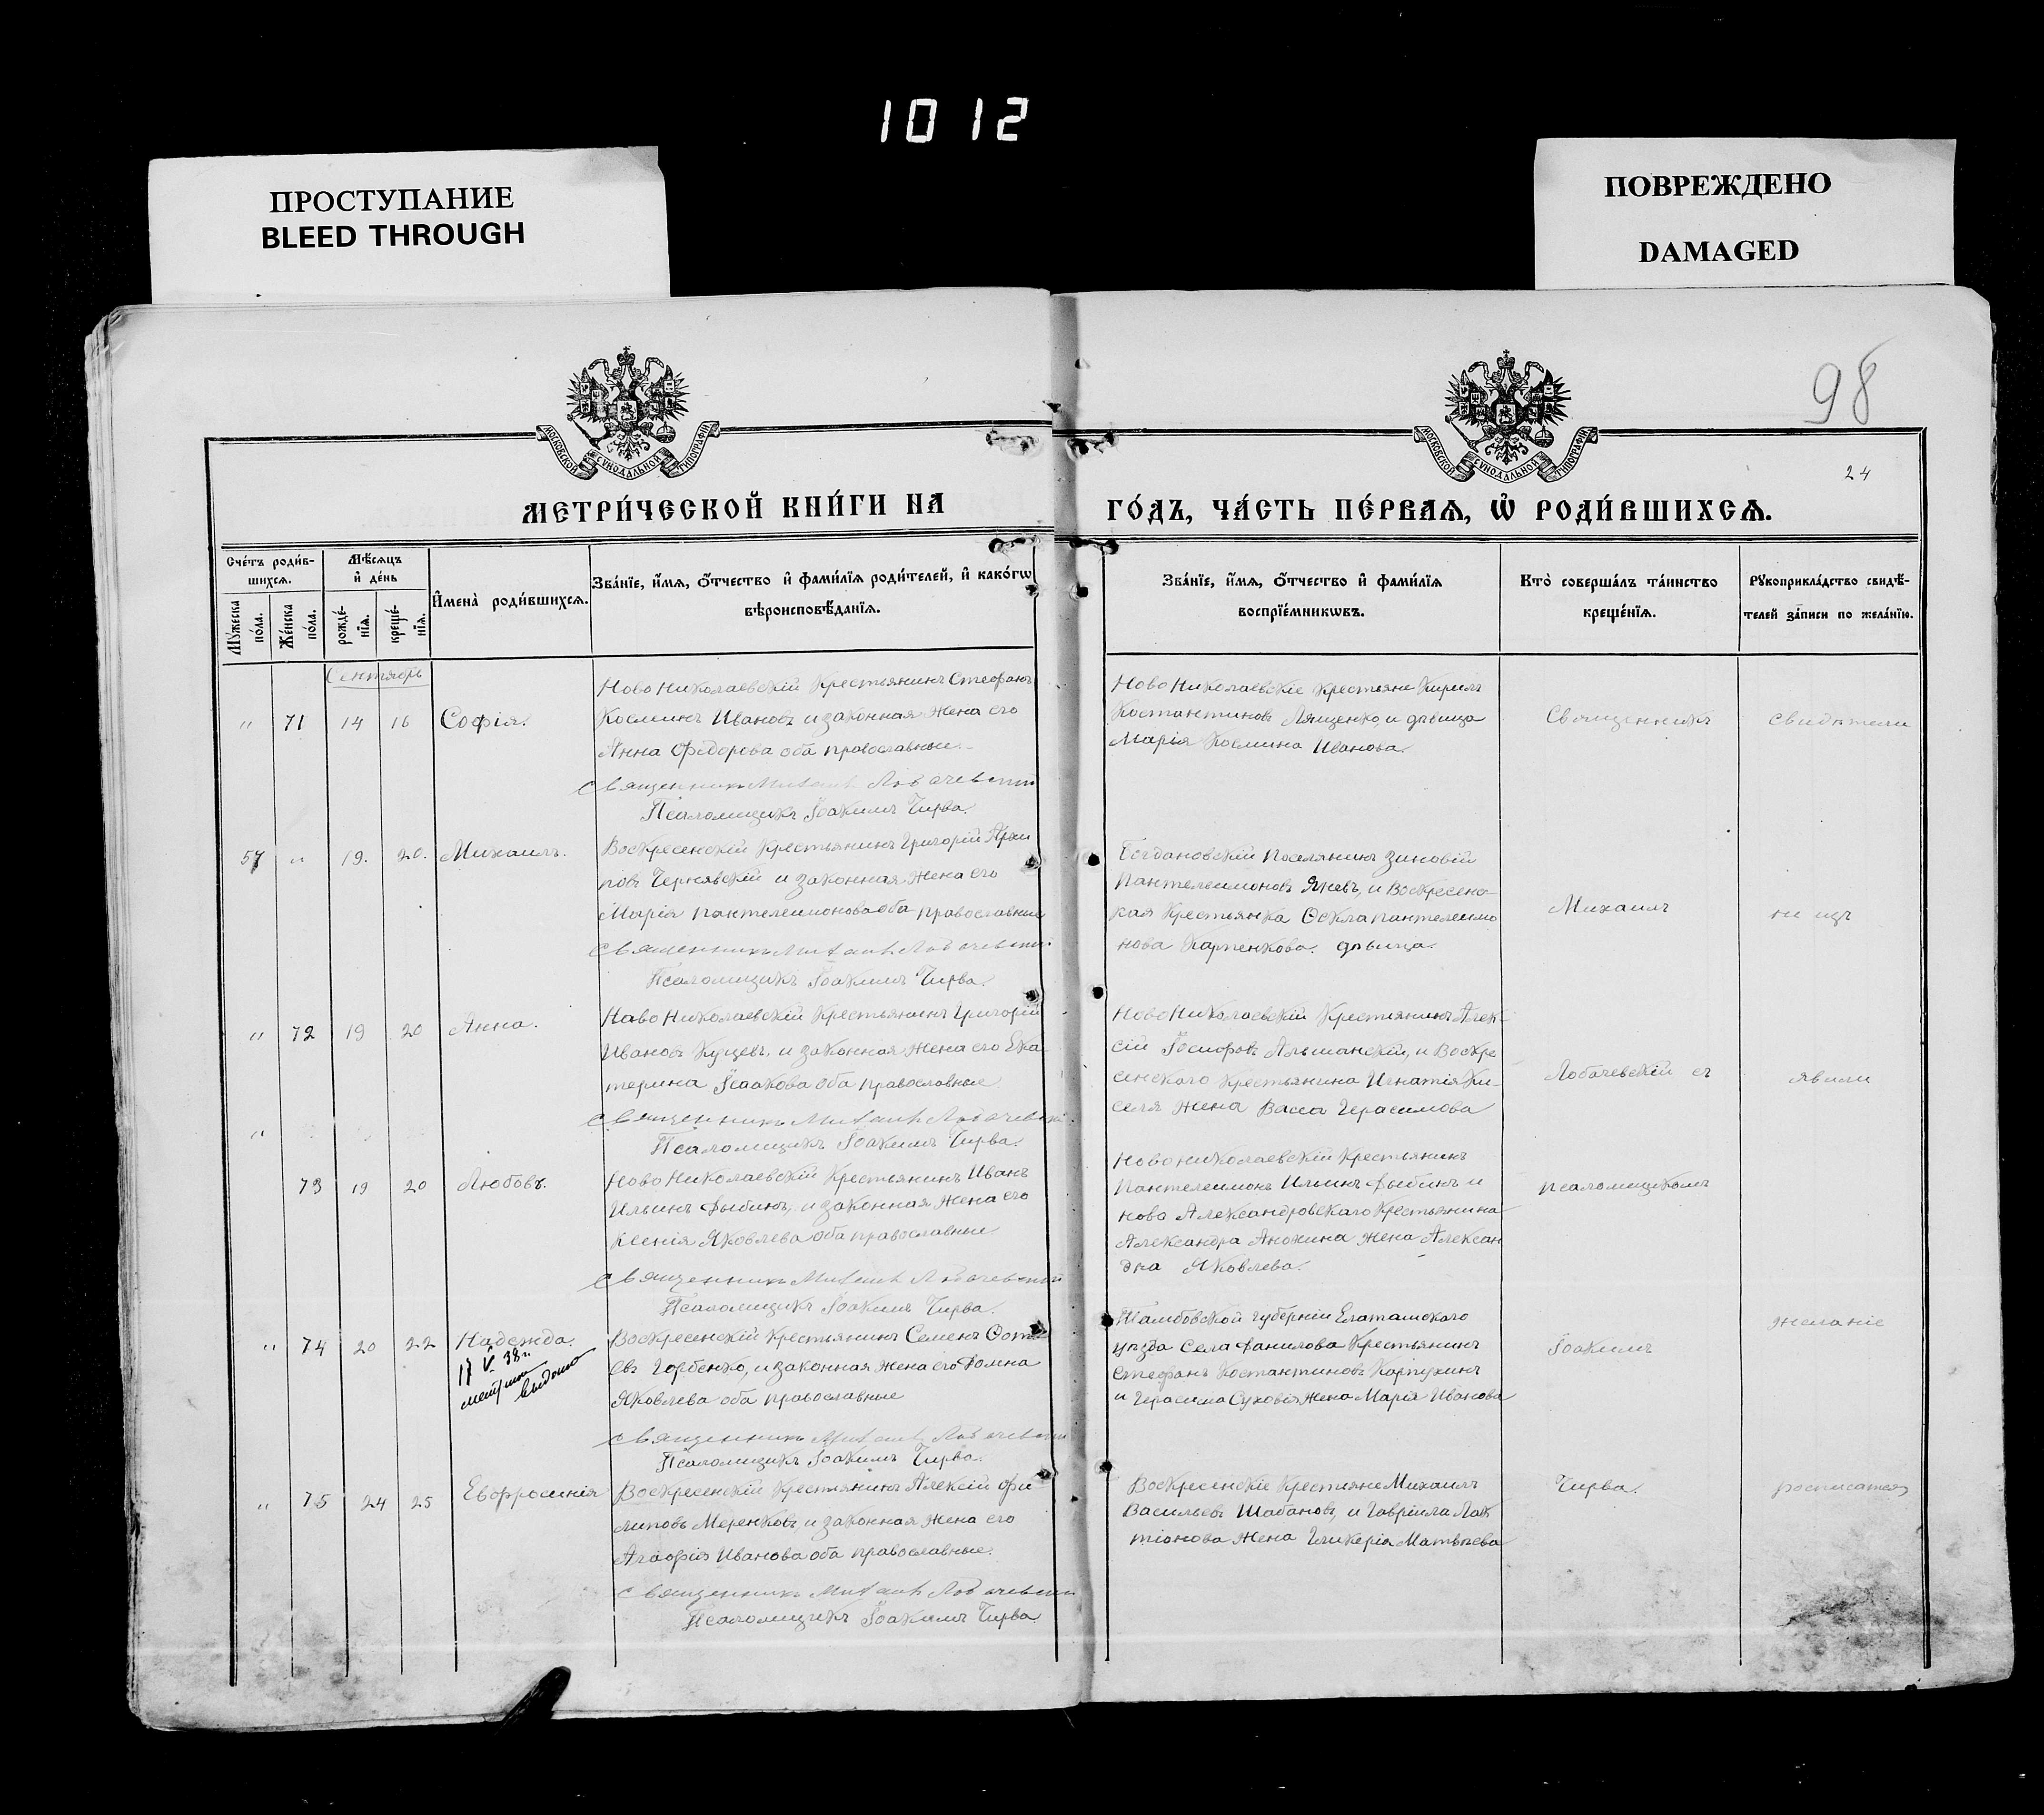 1012
ПРОСТУПАНИЕ
BLEED THROUGH
ПОВРЕЖДЕНО
DAMAGED
98
24
МОСКОВСКОЙ СѴНОДАЛЬНОЙ ТИПОГРАФІИ
МОСКОВСКОЙ СѴНОДАЛЬНОЙ ТИПОГРАФІИ
МЕТРИ́ЧЕСКОЙ КНИ́ГИ НА
ГО́ДЪ, ЧА́СТЬ ПЕ́РВАЯ, Ѽ РОДИ́ВШИХСЯ.
Сче́тъ роди́в-
шихся.
Мѣ́сяцъ
и҆ де́нь
Му́жеска
по́ла.
Же́нска
по́ла.
рожде́-
нїя.
креще́-
нїя.
И҆мена̀ роди́вшихся.
Зва́нїе, и҆́мя, о҆́тчество и҆ фами́лїя роди́телей, и҆ како́гѡ
вѣроисповѣ́данїя.
Зва́нїе, и҆́мя, о҆́тчество и҆ фами́лїя
воспрїе́мникѡвъ.
Кто̀ соверша́лъ та́инство
креще́нїя.
Рꙋкоприкла́дство свидѣ́-
телей за́писи по жела́нїю.
Сентябрь
" 71 14 16 Софія.
Ново Николаевскій Крестьянинъ Стефанъ
Косминъ Ивановъ и законная жена его
Анна Федорова оба православные.
Священникъ Михаилъ Лобачевский
Псаломщикъ Іоакимъ Чирва.
Ново Николаевскіе Крестьяне Кирилъ
Костантиновъ Лященко, и дѣвица
Марія Космина Иванова.
Священникъ
свидѣтели
57 " 19. 20. Михаилъ.
Воскресенскій Крестьянинъ Григорій Архи
повъ Чернявскій и законная жена его
Марія Пантелеимонова оба православные
Священникъ Михаилъ Лобачевский
Псаломщикъ Іоакимъ Чирва.
Богдановскій поселянинъ Зиновій
Пантелеимоновъ Яневъ, и Воскресенс-
кая Крестьянка Ѳекла Пантелеимо
нова Карпенкова. дѣвица.
Михаилъ
не изъ
" 72 19 20 Анна.
Ново Николаевскій Крестьянинъ Григорій
Ивановъ Куцевъ, и законная жена его Ека-
терина Исаакова оба православные
Священникъ Михаилъ Лобачевский
Псаломщикъ Іоакимъ Чирва.
Ново Николаевскій Крестьянинъ Алек-
сій Іосифовъ Альшанскій, и Воскре
сенскаго Крестьянина Игнатія Ки-
селя жена Васса Герасимова
Лобачевскій съ
явили
"
73 19 20 Любовь.
Ново Николаевскій Крестьянинъ Иванъ
Ильинъ Рыбинъ, и законная жена его
Ксенія Яковлева оба православные
Священникъ Михаилъ Лобачевский
Псаломщикъ Іоакимъ Чирва.
Ново Николаевскій Крестьянинъ
Пантелеимонъ Ильинъ Рыбинъ и
ново Александровскаго Крестьянина
Александра Анохина жена Алексан
дра Яковлева.
псаломщикомъ
" 74 20 22 Надежда.
17 V 38 г.
выдано
Воскресенскій Крестьянинъ Семенъ
Горбенко, и законная жена его Домна
Яковлева оба православные
Священникъ Михаилъ Лобачевский
Псаломщикъ Іоакимъ Чирва.
Тамбовской губерніи
уѣзда села Данилова Крестьянинъ
Стефанъ Костантиновъ Карпухинъ
и Герасима Суховія жена Марія Иванова
Іоакимъ
желаніе
" 75 24 25 Евфросинія
Воскресенскій Крестянинъ Алексій Фи-
липовъ Меренковъ, и законная жена его
Агафія Иванова оба православные.
Священникъ Михаилъ Лобачевский
Псаломщикъ Іоакимъ Чирва
Воскресенскіе Крестяне Михаилъ
Васильевъ Шабановъ, и Гавріила Лак
тіонова жена Гликерія Матвѣева
Чирва.
росписатся